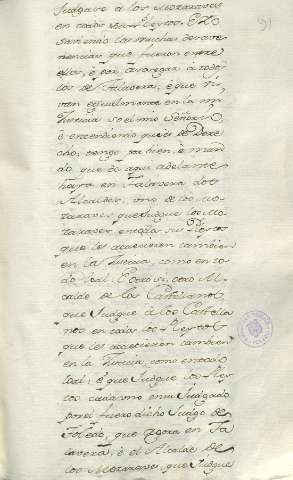 91
Judgare à los Mozarabes
en todos sus Pleytos. E Yo
por
nencias que fueron entre
ellos, è por Avenger à todos
los de Talavera, è que vi-
van egualmente en la mi
Justicia so el mio Señorio,
è entendiendo que es de Dere-
cho; tengo por bien è man-
do que de aqui adelante
haya en Talavera dos
Alcaldes, uno de los Mo-
zaraves que judgue los Mo-
zaraves en todos sus Pleytos
que les acaecieren tambien
en la Justicia como en to-
do loal. E otro si, otro Al-
calde de los Castellanos
que Judgue à los Castella-
nos en todos los Pleytos
que les acaecieren tambien
en la Justicia, como en todo
loal: è que Judgue los Pley-
tos cada uno en su Judgado
por el fuero dicho Juzgo de
Toledo, que agora en Ta-
lavera; è el Alcalde de
los Mozaraves, que Judgue